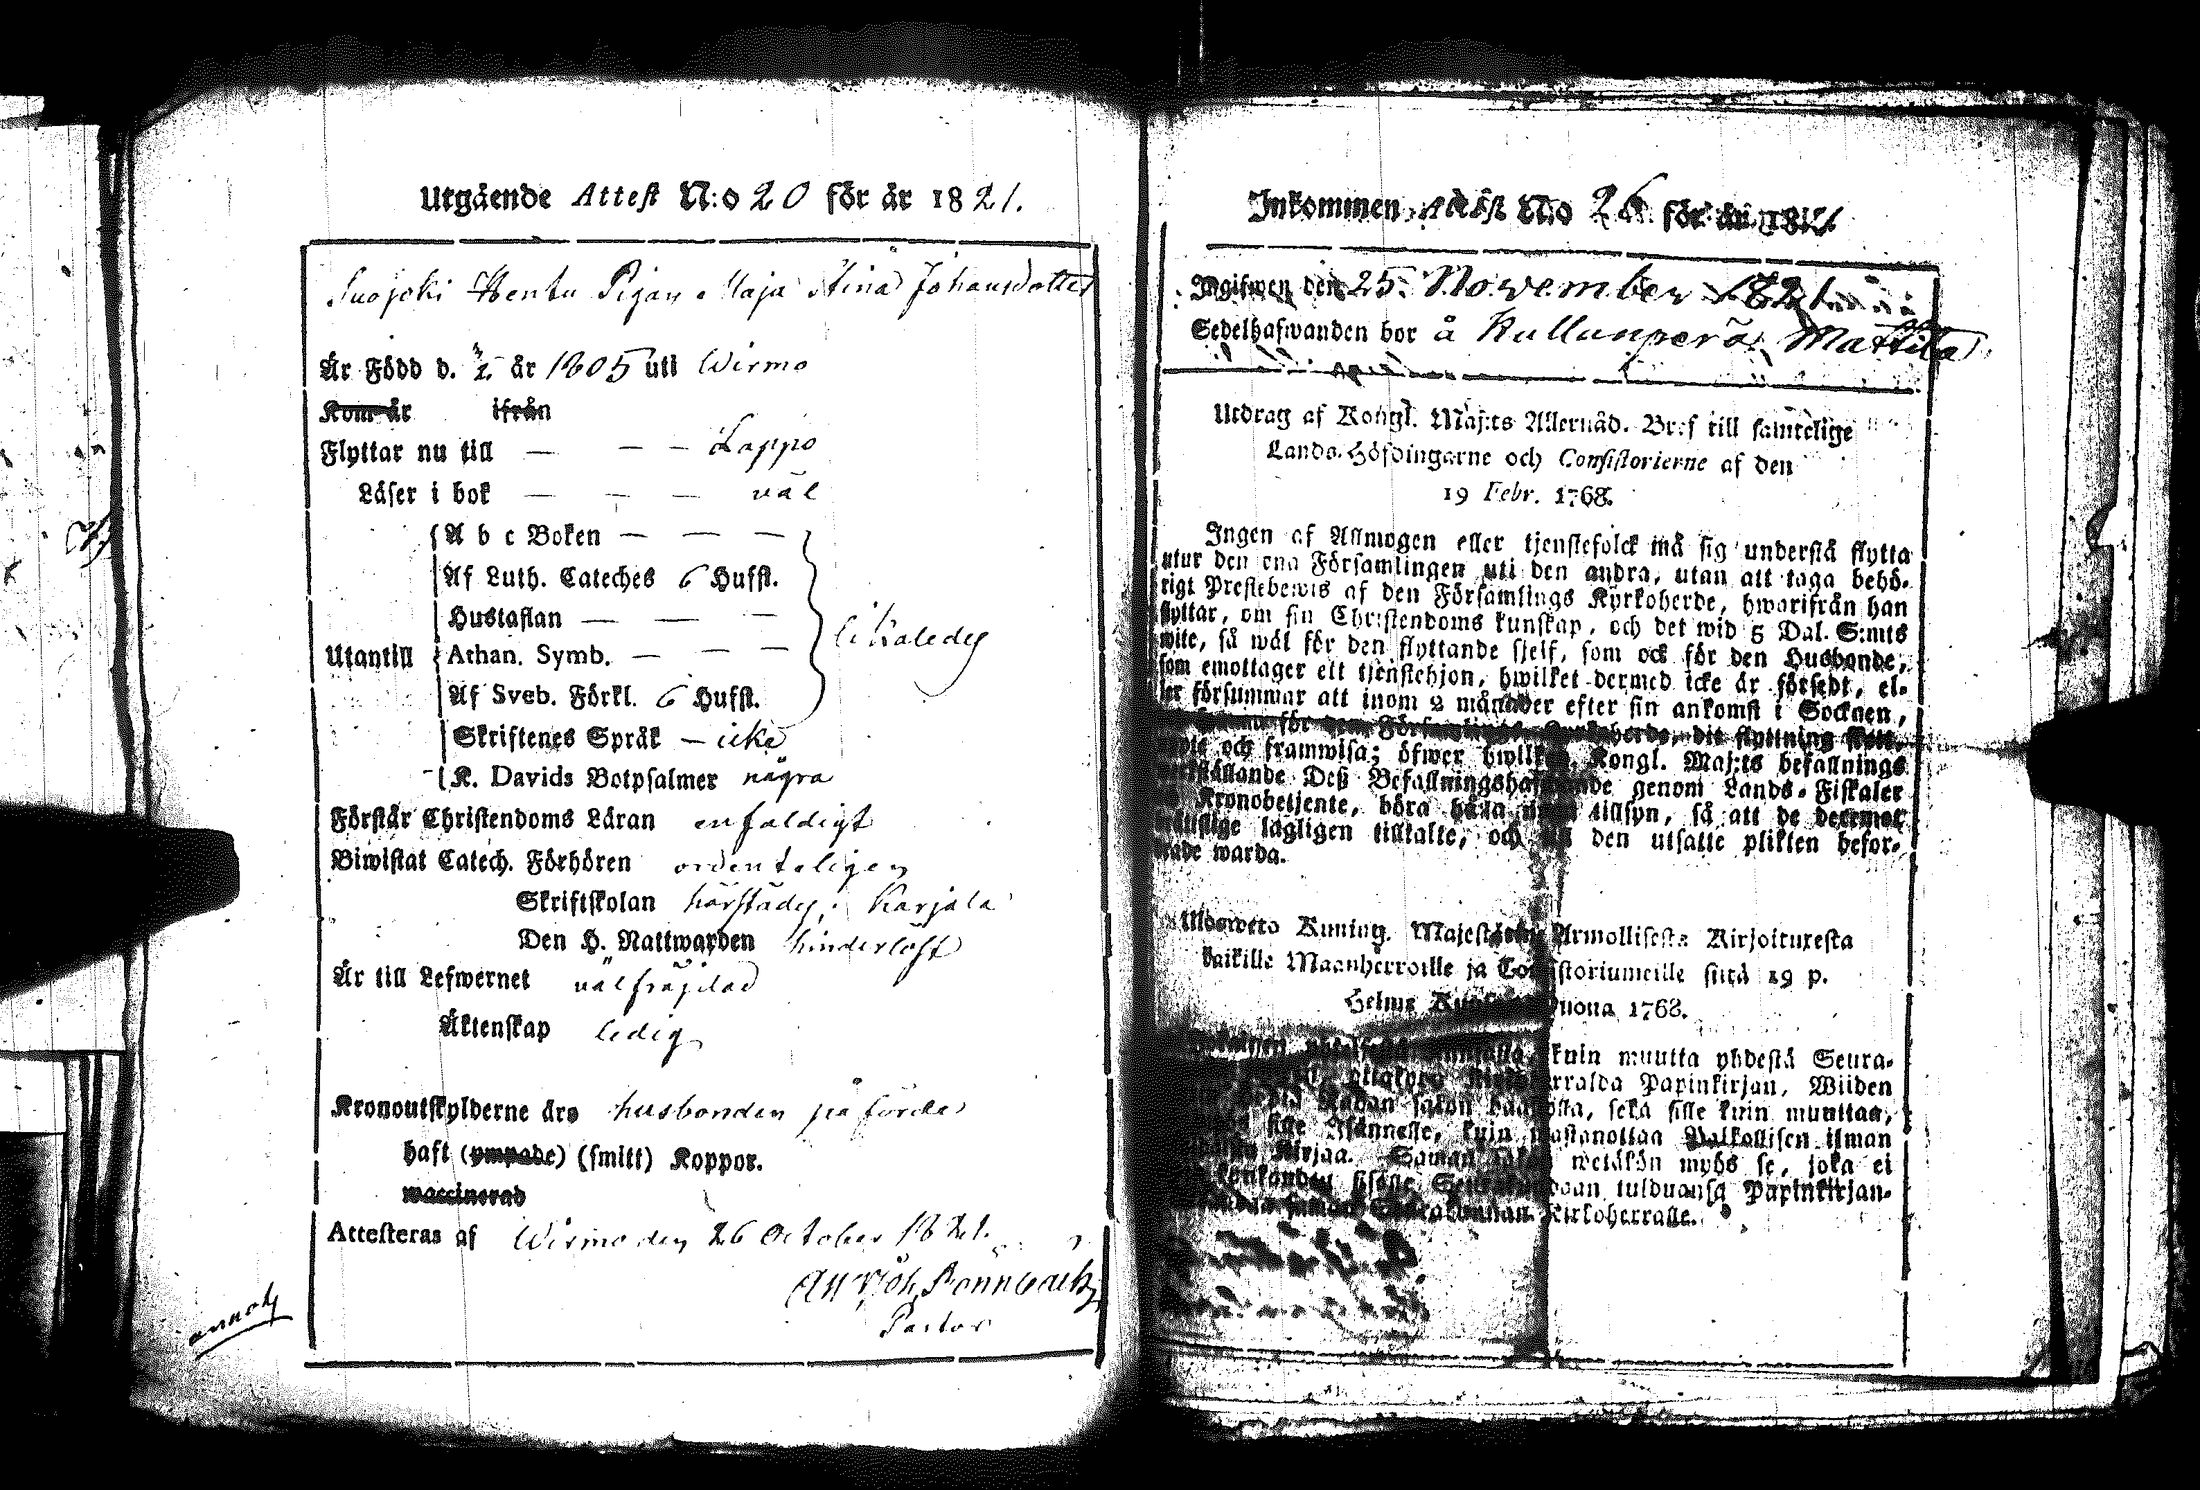 Utgående Attest N:o 20 för år 1821.
Suojoki Hentu Pigan Maja Stina Johansdotter
Är Född d. år 1805 uti Wirmo
Kom år ifrån
Flyttar nu till — — — Lappo
Läser i bok — — — väl
Utantill
A b c Boken — — — —
Af Luth. Cateches 6 Hufst.
Hustaflan — — —
likaledes
Athan. Symb. — — —
Af Sveb. Förkl. 6 Hufst.
Skriftenes Språk — icke
K. Davids Botpsalmer några
Förstår Christendoms Läran enfaldigt
Biwistat Catech. Förhören ordenteligen
Skriftskolan härstädes i Karjala
Den H. Nattwarden hinderlöst
Är till Lefwernet välfräjdad
Äktenskap ledig
Kronoutskylderne äro husbonden påförde
haft (ympade) (smitt) Koppor.
waccinerad
Attesteras af Wirmo den 26 October 1821.
Pastor
annot
Inkommen Attest N:o 26 för år 1821
Ingifwen den 25. November 1821
Sedelhafwanden bor å Kullanperä Mattila
Utdrag af Kongl. Maj:ts Allernåd. Bref till samtelige
Lands-Höfdingarne och Consistorierne af den
19 Febr. 1768.
Ingen af Allmogen eller tjenstefolck må sig understå flytta
utur den ena Församlingen uti den andra, utan att taga behö-
rigt Prestebewis af den Församlings Kyrkoherde, hwarifrån han
flyttar, om sin Christendoms kunskap, och det wid 5 Dal. S:mts
wite, så wäl för den flyttande sjelf, som ock för den Husbonde,
som emottager ett tjenstehjon, hwilket dermed icke är försedt, el-
ler försummar att inom 2 månader efter sin ankomst i Socknen,
för den Församlings Kyrkoherde, dit flyttning skett,
och framwisa; öfwer hwilket Kongl. Maj:ts befallnings
werkställande Deß Befallningshafwande genom Lands-Fiskaler
Kronobetjente, böra hafwa tillsyn, så att de deremot
lagligen tilltalte, och till den utsatte plikten befor-
drade warda.
Ulosweto Kuning. Majestätin Armollisesta Kirjoituxesta
kaikille Maanherroille ja Consistoriumeille siitä 19 p.
Helme Kuusa wuonna 1768.
kuin muutta yhdestä Seura-
ottakoon Kirkoherralda Papinkirjan, Wiiden
sakon haastolla, sekä sille kuin muuttaa,
Isännelle, kuin wastanottaa Palkollisen ilman
Kirjaa. Saman sakon wetäkön myös se, joka ei
sisälle Seurakundaan tulduansa Papinkirjan-
Seurakunnan Kirkoherralle.